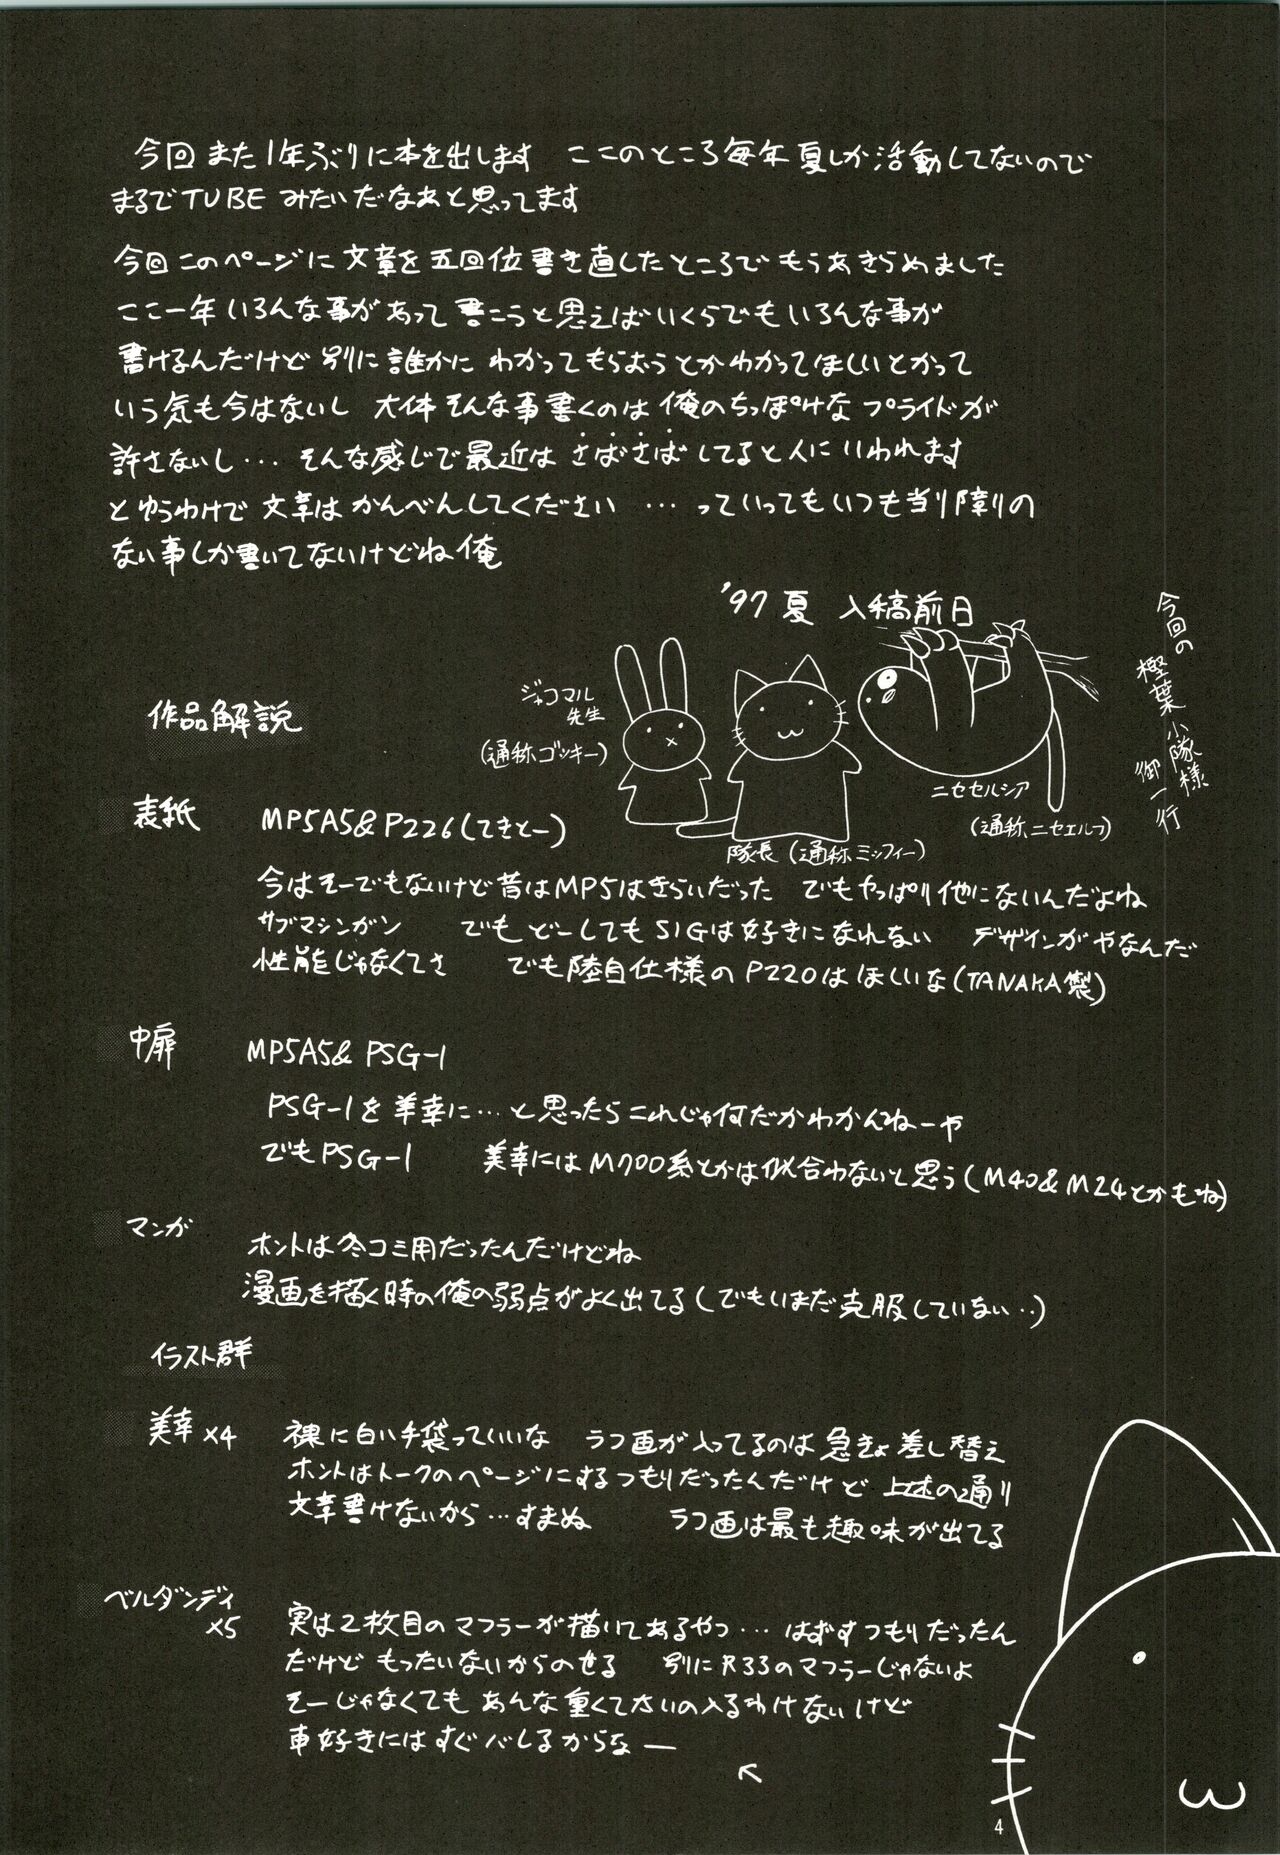 今回また1年ぶりに本を出します ここのところ毎年夏しか活動してないので
まるでTUBEみたいだなぁと思ってます
今回このページに文章を五回位書き直したところでもうあきらめました
ここ一年いろんな事があって書こうと思えばいくらでもいろんな事が
書けるんだけど別に誰かにわかってもらおうとかわかってほしいとかって
いう気も今はないし 大体そんな事書くのは俺のちっぽけなプライドが
許さないし… そんな感じで最近はさばさばしてると人にいわれます
とゆうわけで文章はかんべんしてください …っていってもいつも当り障りの
ない事しか書いてないけどね俺
'97夏 入稿前日
今回の
樫葉小隊様
御一行
ジャコマル
先生
(通称ゴッキー)
隊長(通称ミッフィー)
ニセセルシア
(通称ニセエルフ)
作品解説
表紙 MP5A5&P226(てきとー)
今はそーでもないけど昔はMP5はきらいだった でもやっぱり他にないんだよね
サブマシンガン でもどーしてもSIGは好きになれない デザインがやなんだ
性能じゃなくてさ でも陸自仕様のP220はほしいな(TANAKA製)
中扉 MP5A5&PSG-1
PSG-1を美幸に…と思ったらこれじゃ何だかわかんねーや
でもPSG-1 美幸にはM700系とかは似合わないと思う(M40&M24とかもね)
マンガ ホントは冬コミ用だったんだけどね
漫画を描く時の俺の弱点がよく出てる(でもいまだ克服していない‥)
イラスト群
美幸×4 裸に白い手袋っていいな ラフ画が入ってるのは急きょ差し替え
ホントはトークのページにするつもりだったんだけど 上述の通り
文章書けないから…すまぬ ラフ画は最も趣味が出てる
ベルダンディ
×5 実は2枚目のマフラーが描いてあるやつ… はずすつもりだったん
だけど もったいないからのせる 別にR33のマフラーじゃないよ
そーじゃなくても あんな重くてさいの入るわけないけど
車好きにはすぐバレるからなー
↖
4